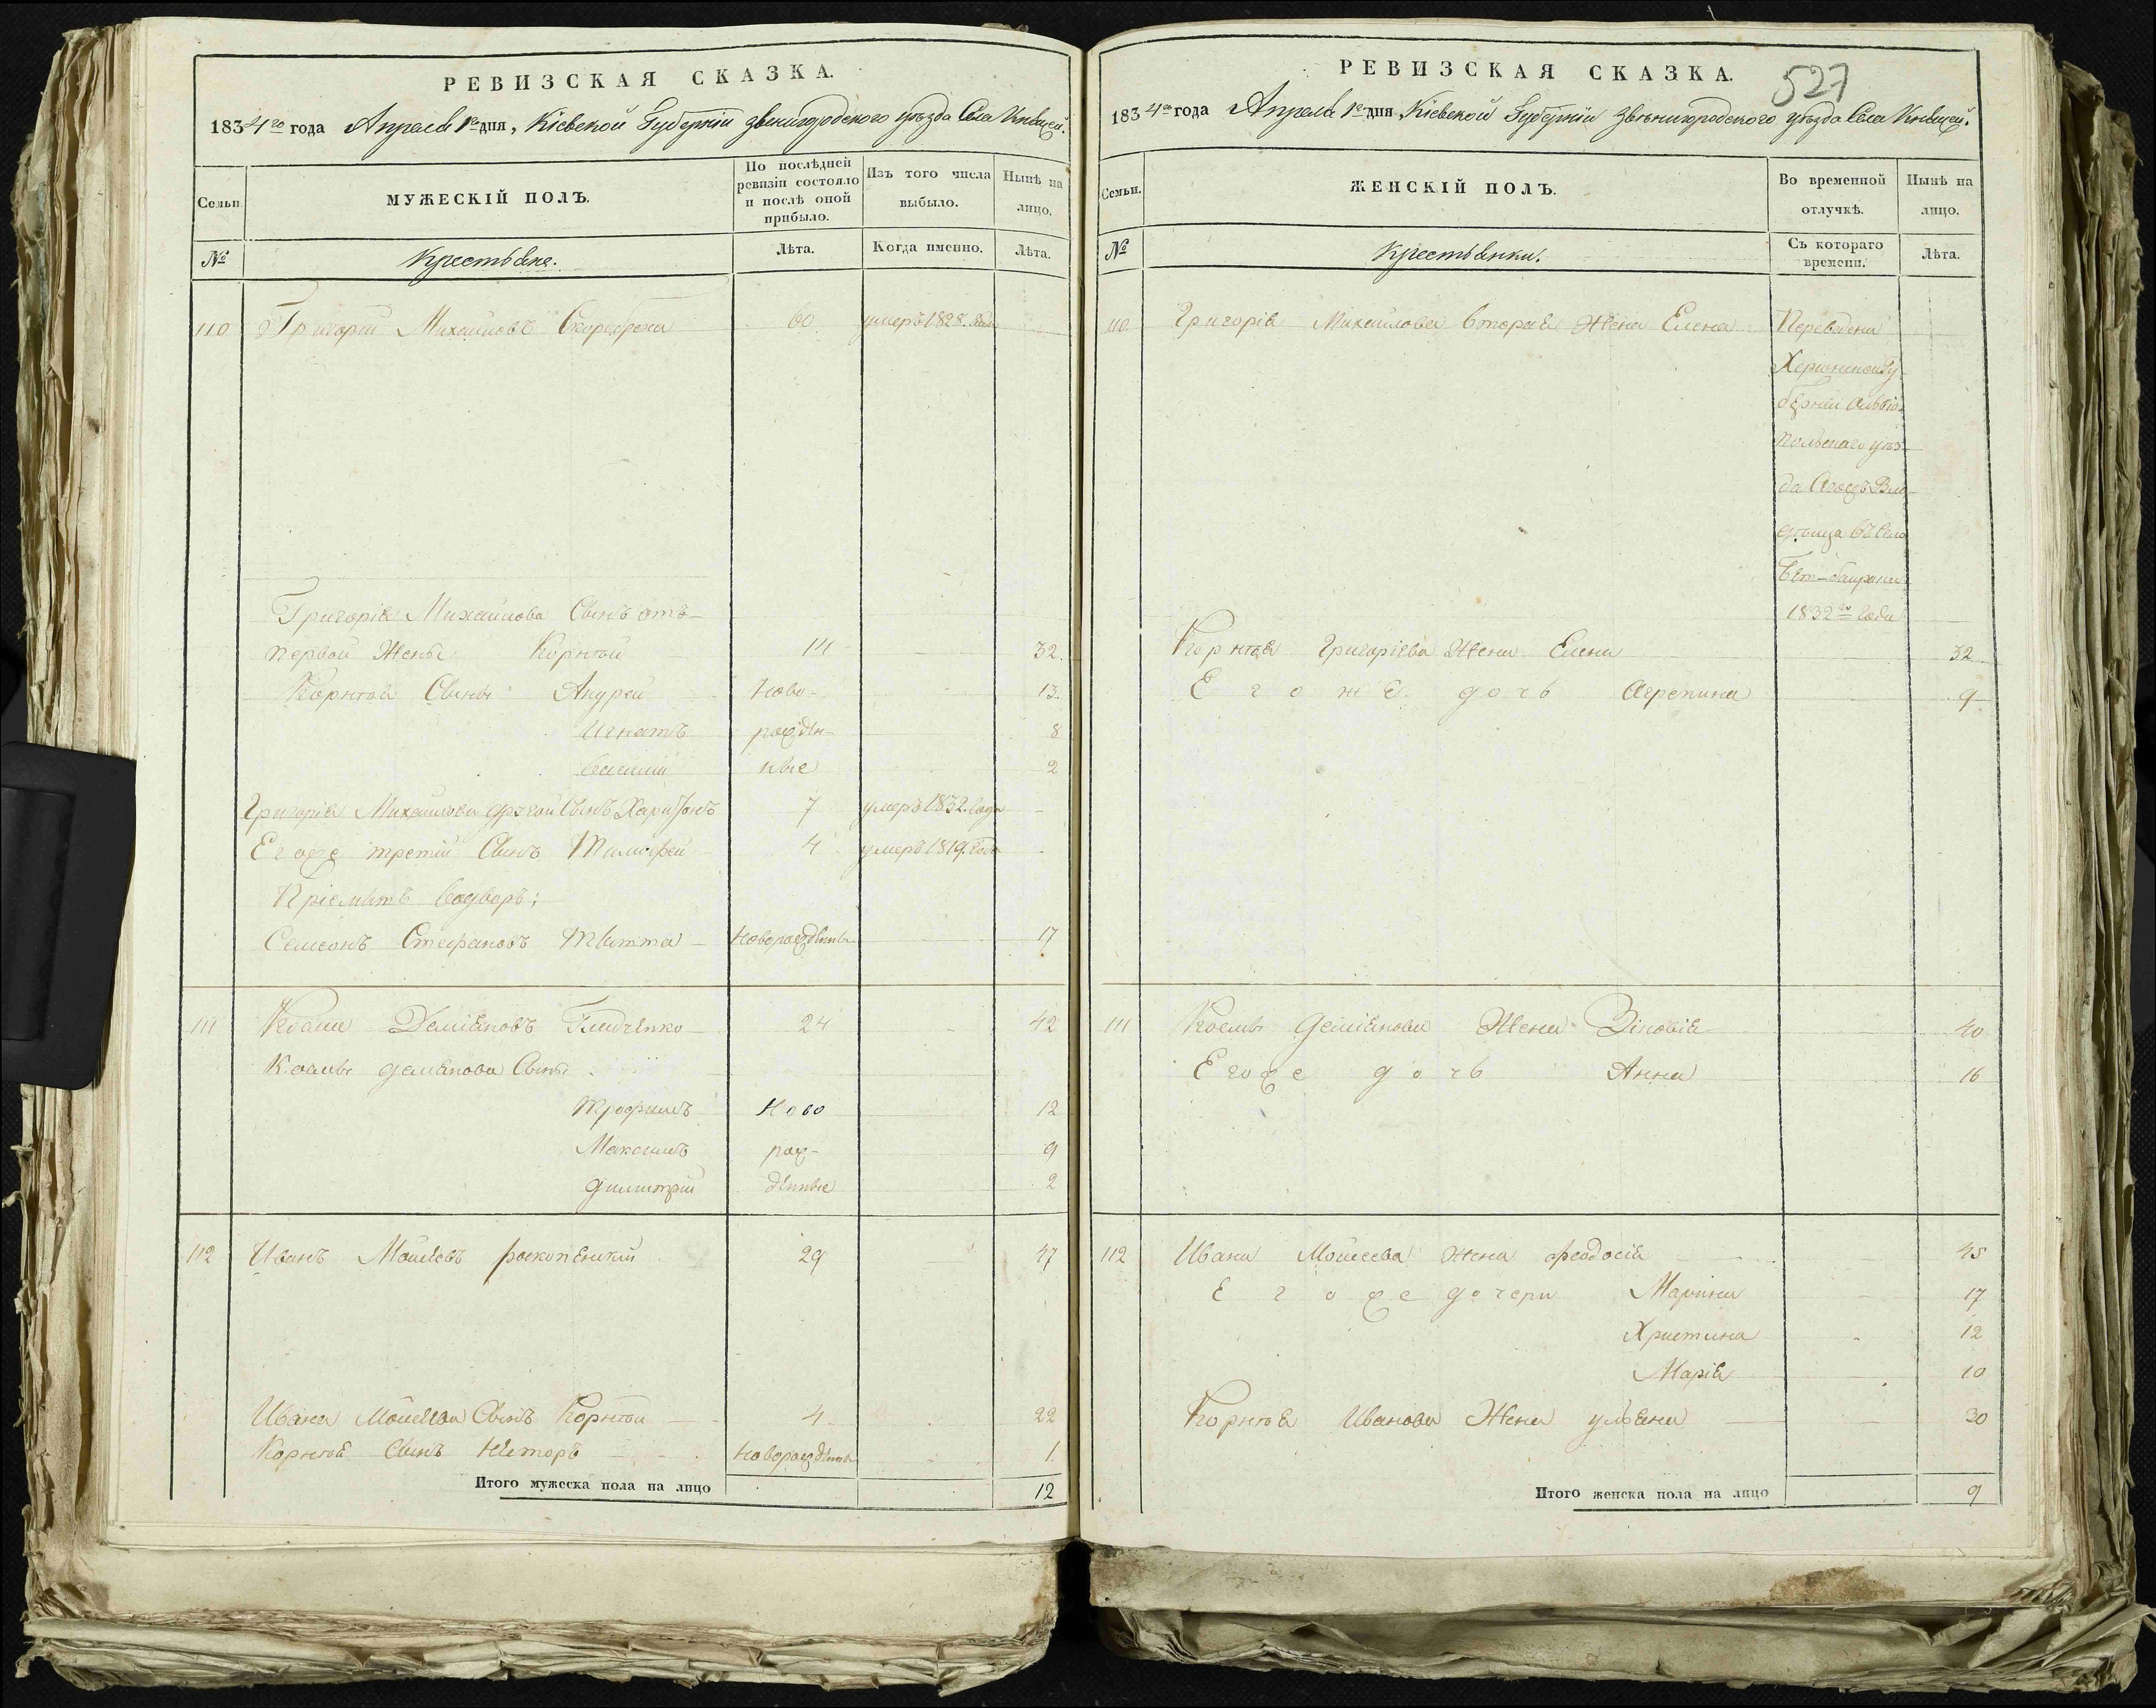 РЕВИЗСКАЯ СКАЗКА.
1834го года Апреля 1го дня, Кіевской Губерніи Звенигородского уѣзда Села
МУЖЕСКІЙ ПОЛЪ.
Семьи
По послѣдней ревизіи состояло и послѣ оной прибыло.
Изъ того числа выбыло.
Нынѣ на лицо.
№
Крестьяне.
Лѣта.
Когда именно.
Лѣта.
110 Григорій Михайловъ 60 умеръ 1828. года
Григорія Михайлова Сынъ отъ
первой Жены Корнѣй 14 32.
Корнѣя Сыны Андрей Ново- 13.
Игнатъ рожден- 8
Василій ные 2
Григорія Михайлова другой Сынъ Харитонъ 7 умеръ 1832. года
Его же третій Сынъ Тимофей 4 умеръ 1819. года
Пріемытъ
Семіонъ Стефановъ Новорожденный 17
111 Козма Деміяновъ 24 42
Козмы Демянова Сыны
Трофимъ Ново 12
Максимъ рож- 9
Димитрій денные 2
112 Иванъ Моисеевъ 29 47
Ивана Моисеева Сынъ Корнѣй 4 22
Корнѣя Сынъ Новорожденный 1
Итого мужеска пола на лицо 12
527
РЕВИЗСКАЯ СКАЗКА.
1834го года Апреля 1го дня, Кіевской Губерніи Звенигородского уѣзда Села
Семьи.
ЖЕНСКІЙ ПОЛЪ.
Во временной отлучкѣ.
Нынѣ на лицо.
№
Крестьянки.
Съ котораго времени.
Лѣта.
110 Григорія Михайлова вторая Жена Елена Переведена
Херсонской Гу-
берніи Ольвіо-
польскаго уѣз-
да
въ Село
1832го года
Корнѣя Григоріева Жена Елена 32
Его же дочь Агрепина 9
111 Козмы Деміянова Жена Зіновія 40
Его же дочь Анна 16
112 Ивана Моисеева Жена Феодосія 45
Его же дочери Марина 17
Христина 12
Марія 10
Корнѣя Иванова Жена Ульяна 20
Итого женска пола на лицо 9